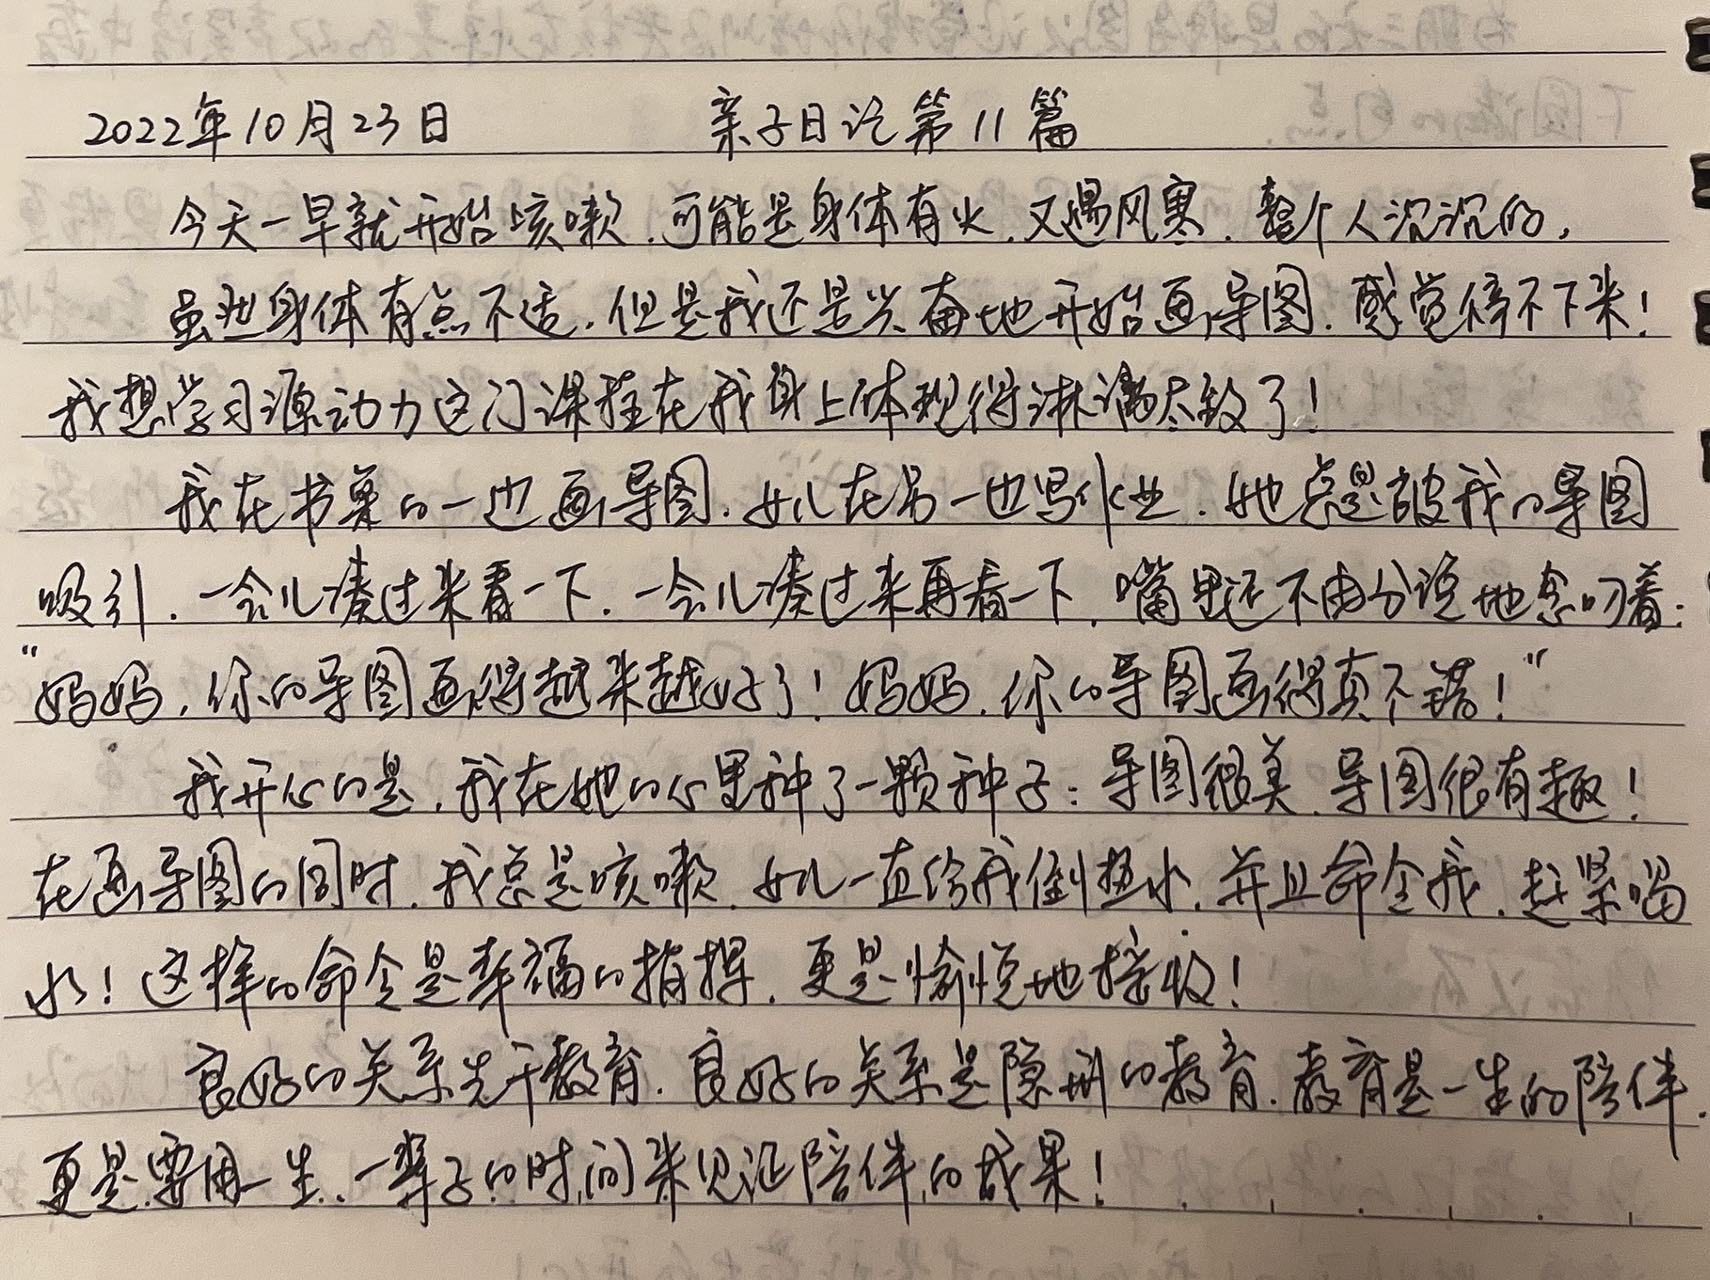 2022年10月23日 亲子日记第11篇
今天一早就开始咳嗽,可能是身体有火,又遇风寒,整个人沉沉的,
虽然身体有点不适,但是我还是兴奋地开始画导图,感觉停不下来!
我想学习源动力这门课程在我身上体现得淋漓尽致了!
我在书桌的一边画导图,女儿在另一边写作业,她总是被我的导图
吸引,一会儿凑过来看一下,一会儿凑过来再看一下,嘴里还不由分说地念叨着:
"妈妈,你的导图画得越来越好了!妈妈,你的导图画得真不错!"
我开心的是,我在她的心里种了一颗种子:导图很美,导图很有趣!
在画导图的同时,我总是咳嗽,女儿一直给我倒热水,并且命令我,赶紧喝
水!这样的命令是幸福的指挥,更是愉悦地接收!
良好的关系先于教育,良好的关系是隐形的教育,教育是一生的陪伴,
更是要用一生、一辈子的时间来见证陪伴的成果!